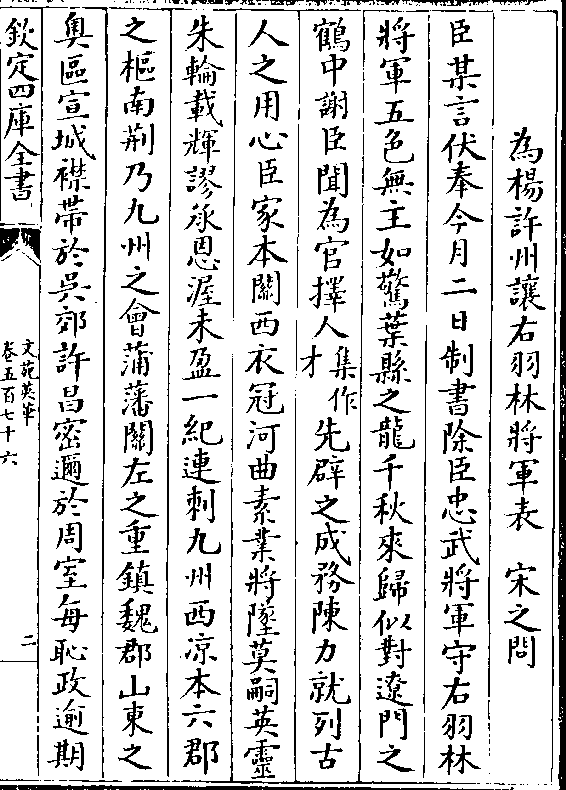 為楊許州讓右羽林將軍表　宋之問
臣某言伏奉今月二日制書除臣忠武將軍守右羽林
將軍五色無主如驚葉縣之龍千秋來歸似對遼門之
鶴中謝臣聞為官擇人集作才先辟之成務陳力就列古
人之用心臣家本關西衣冠河曲素業將墜莫嗣英靈
朱輪載輝謬承恩渥未盈一紀連刺九州西涼本六郡
之樞南荆乃九州之會蒲藩關左之重鎮魏郡山東之
奥區宣城襟帶於吳郊許昌密邇於周室每恥政逾期
欽定四庫全書
文苑英華
卷五百七十六
二